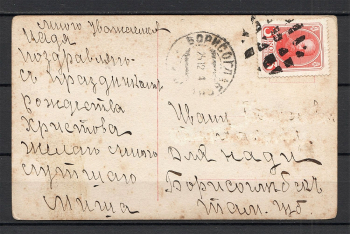 много Уважаемая
Надя
поздравляю
съ праздникам
рождества
Христова
желаю много
лутшаго
миша
БОРИСОГЛѢБСК
Ивану
для нади
Борисоглебск
Там. губ